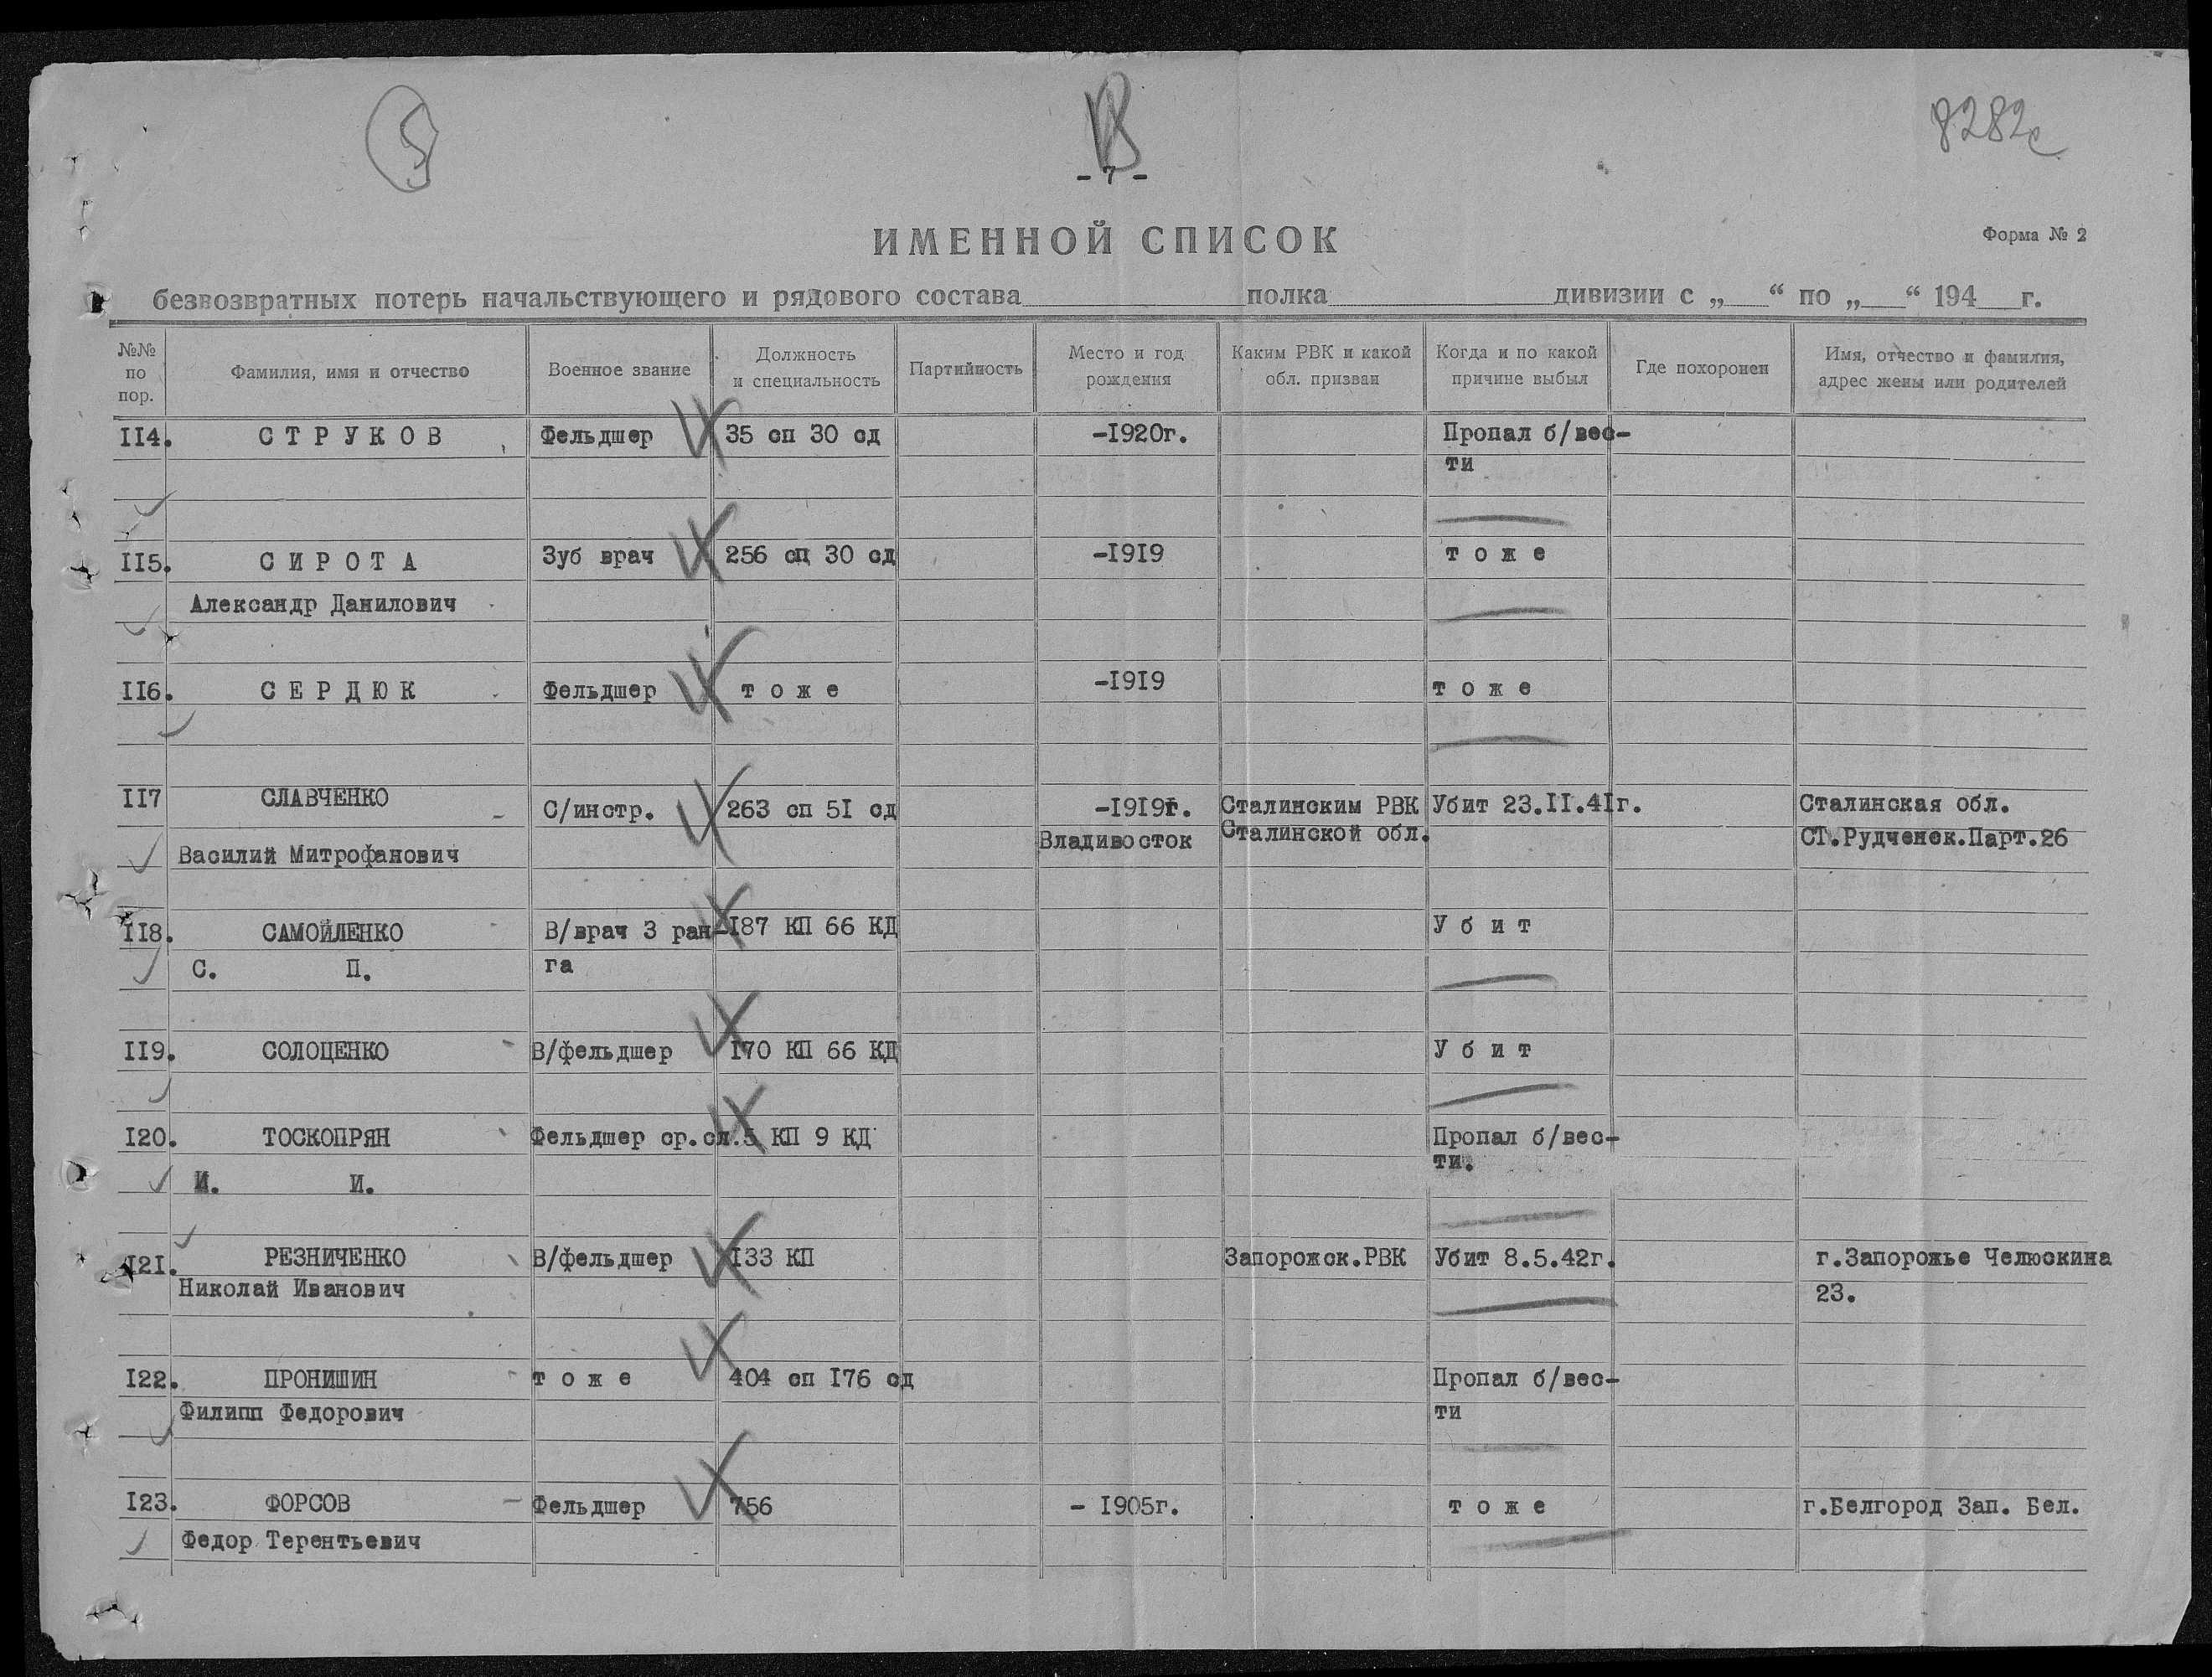 5
- 7 -
8282с
ИМЕННОЙ СПИСОК
Форма № 2
безвозвратных потерь начальствующего и рядового состава полка дивизии с „ “ по „ “ 194 г.
№№ по пор.
Фамилия, имя и отчество
Военное звание
Должность и специальность
Партийность
Место и год рождения
Каким РВК и какой обл. призван
Когда и по какой причине выбыл
Где похоронен
Имя, отчество и фамилия, адрес жены или родителей
II4. СТРУКОВ Фельдшер 35 сп 30 сд -I920г. Пропал б/вес-
ти
II5. СИРОТА Зуб врач 256 сп 30 сд -I9I9 тоже
Александр Данилович
II6. СЕРДЮК Фельдшер тоже -I9I9 тоже
II7 СЛАВЧЕНКО С/инстр. 263 сп 5I сд -I9I9г. Сталинским РВК Убит 23.II.4Iг. Сталинская обл.
Василий Митрофанович Владивосток Сталинской обл. СТ.Рудченск.Парт.26
II8. САМОЙЛЕНКО В/врач 3 ран- I87 КП 66 КД Убит
С. П. га
II9. СОЛОЦЕНКО В/фельдшер I70 КП 66 КД Убит
I20. ТОСКОПРЯН Фельдшер ср.сл. 5 КП 9 КД Пропал б/вес-
И. И. ти.
I2I. РЕЗНИЧЕНКО В/фельдшер I33 КП Запорожск.РВК Убит 8.5.42г. г.Запорожье Челюскина
Николай Иванович 23.
I22. ПРОНИШИН тоже 404 сп I76 сд Пропал б/вес-
Филипп Федорович ти
I23. ФОРСОВ Фельдшер 756 - I905г. тоже г.Белгород Зап. Бел.
Федор Терентьевич